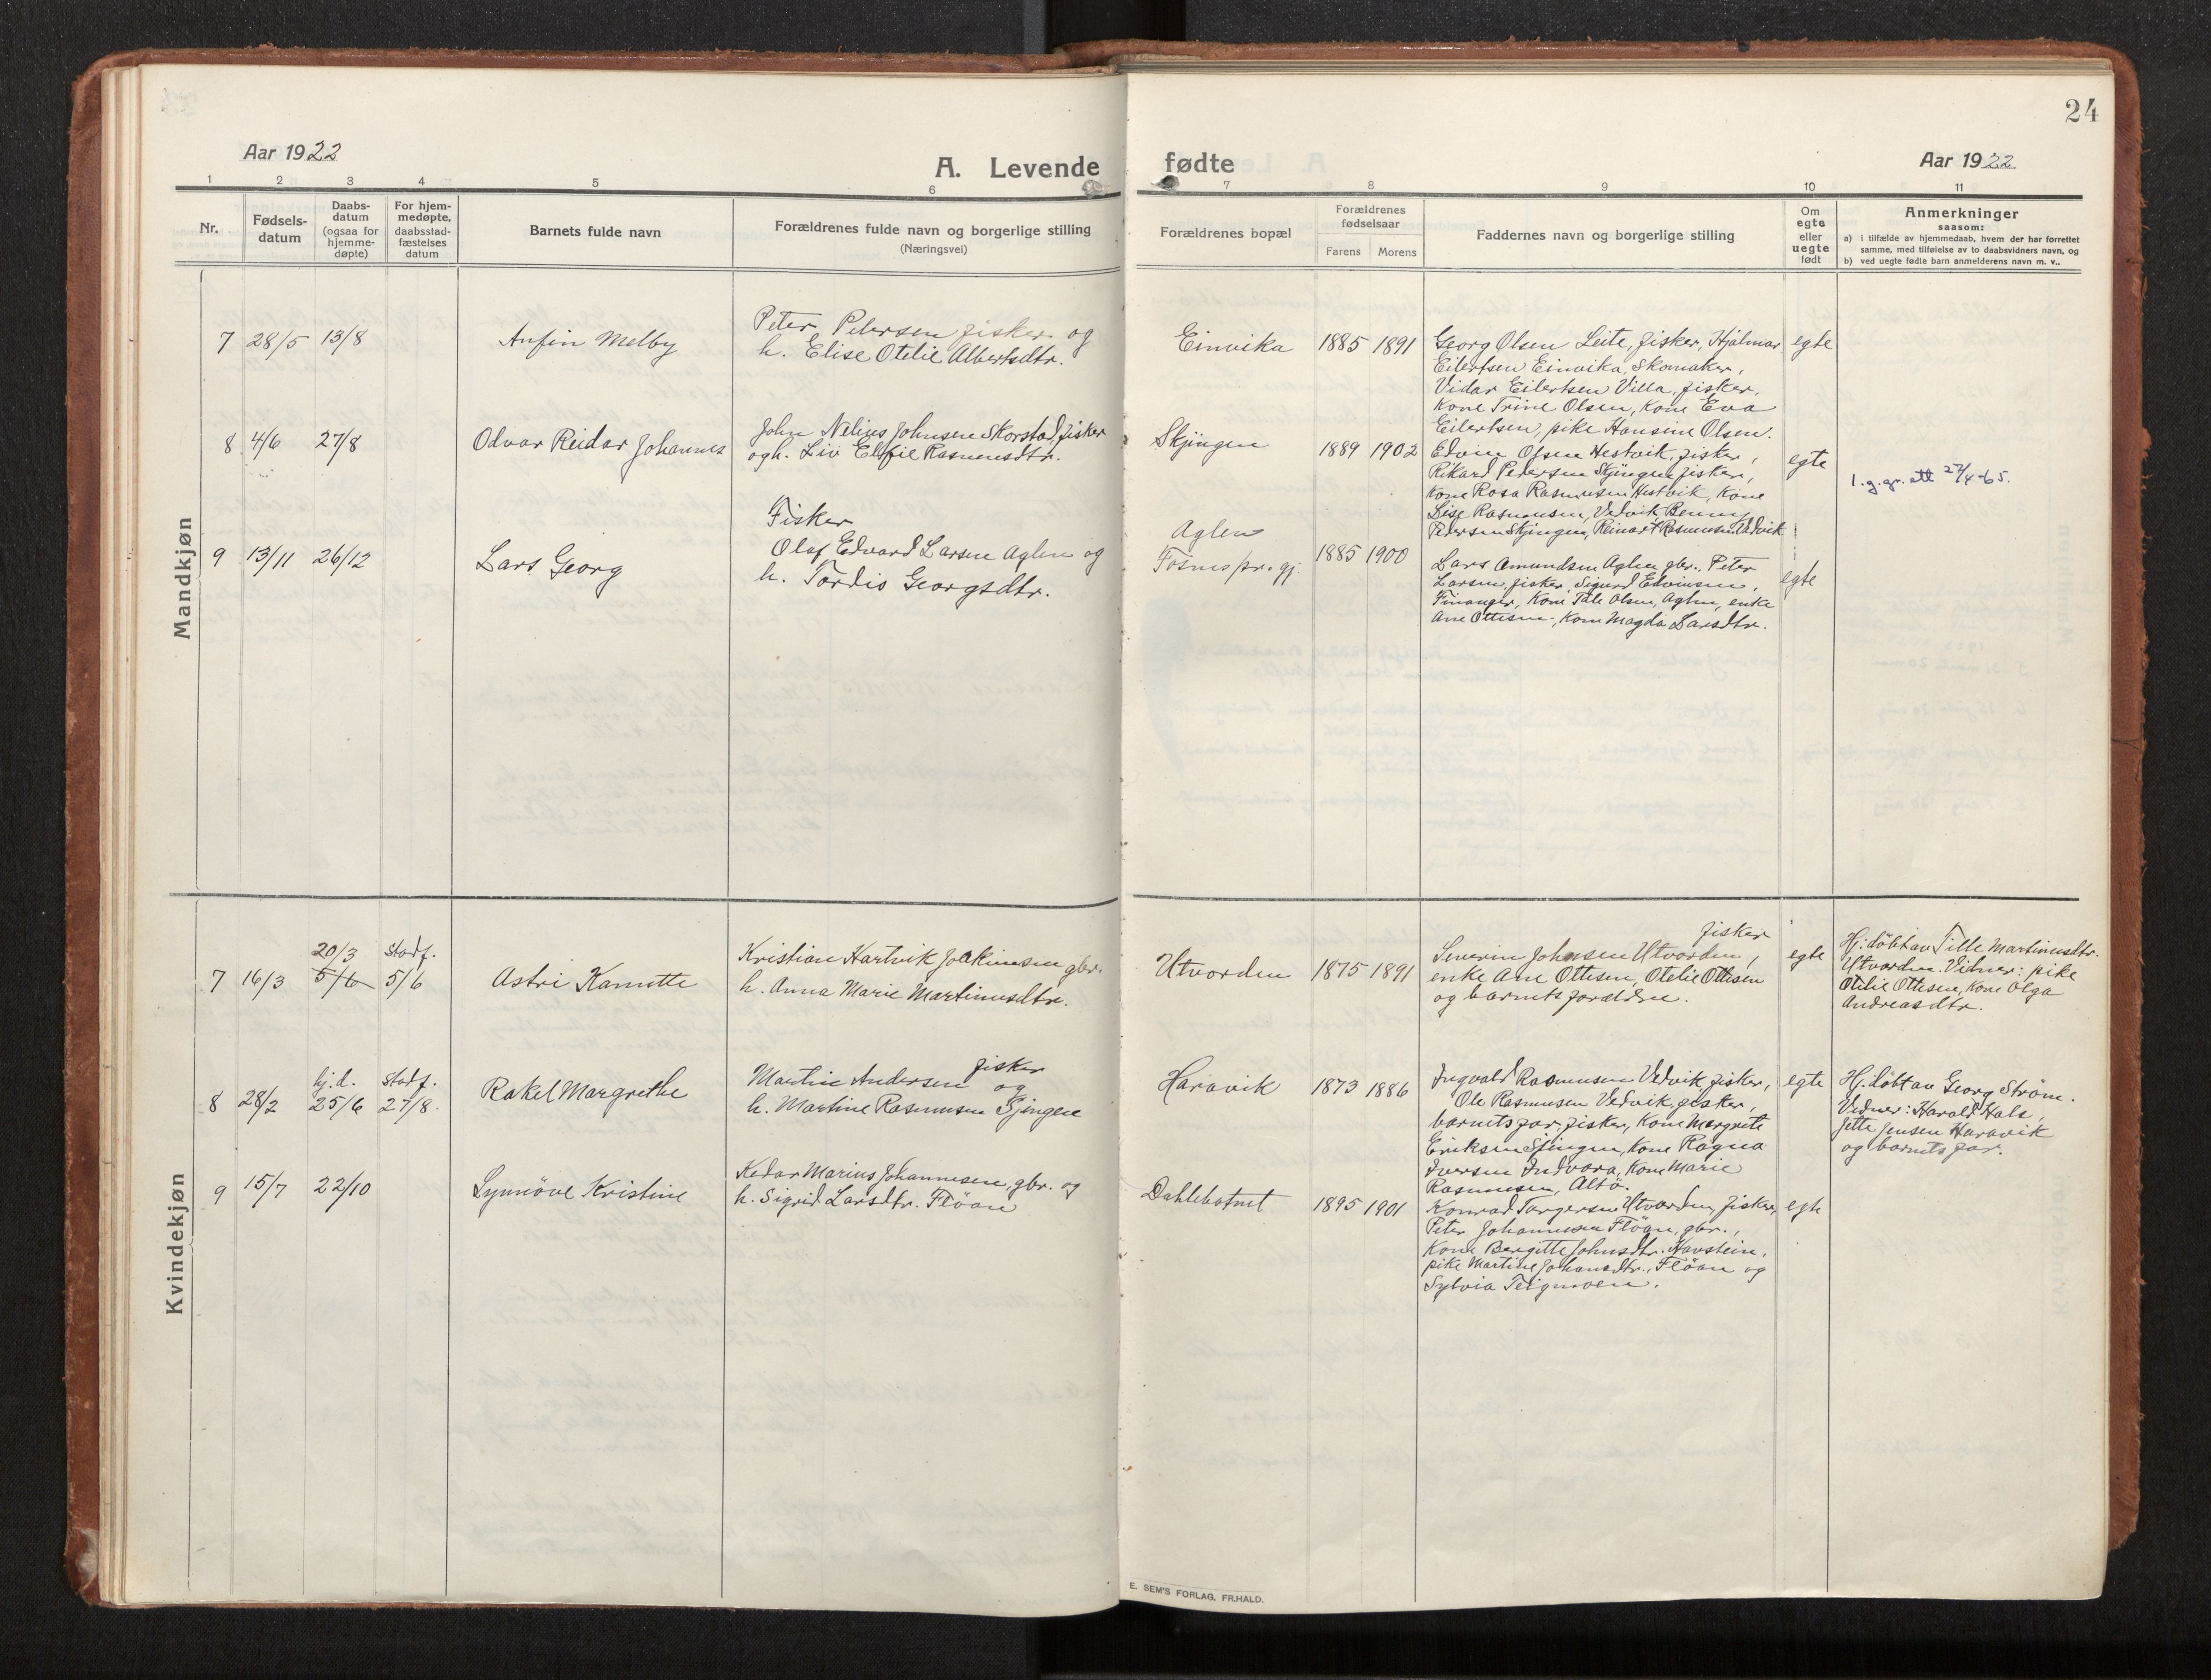 24
Aar 1922
A. Levende fødte
Aar 1922
1 2 3 4 5 6 7 8 9 10 11
Nr.
Fødsels-
datum
Daabs-
datum
(ogsaa for
hjemme-
døpte)
For hjem-
medøpte,
daabsstad-
fæstelses
datum
Barnets fulde navn
Forældrenes fulde navn og borgerlige stilling
(Næringsvei)
Forældrenes bopæl
Forældrenes
fødselsaar
Farens Morens
Faddernes navn og borgerlige stilling
Om
egte
eller
uegte
født
Anmerkninger
saasom:
a) i tilfælde av hjemmedaab, hvem der har forrettet
samme, med tilføielse av to daabsvidners navn, og
b) ved uegte fødte barn anmelderens navn m. v..
Mandkjøn
7 28/5 13/8
Anfin Melby
Peter Petersen fisker og
h. Elise Otelie Albertsdtr.
Einvika 1885 1891
Georg Olsen Leite, fisker, Hjalmar
Eilertsen Einvika, Skomaker,
Vidar Eilertsen Villa, fisker,
Kone Trine Olsen, Kone Eva
Eilertsen, pike Hansine Olsen.
egte
8 4/6 27/8
Odvar Reidar Johannes
John Nelius Johnsen Skorstad, fisker
og h. Liv Rasmusdtr.
Skjingen 1889 1902
Edvin Olsen Hestvik, fisker,
Rikard Pedersen Skjingen fisker,
Kone Rosa Rasmussen Hestvik, Kone
Lise Rasmussen, Vedvik Benny
Pedersen Skjingen, Reinart Rasmussen Vedvik
egte
1. g. gr. att 27/4-65.
9 13/11 26/12
Lars Georg
Fisker
Olaf Edvard Larsen Aglen og
h. Tordis Georgsdtr.
Aglen
Fosnes pr. gj.
1885 1900
Lars Amundsen Aglen gbr. Peter
Larsen fisker, Sigurd Edvinsen,
Finanger, Kone Tale Olsen, Aglen, enke
Ane Ottesen, Kone Magda Larsdtr.
egte
Kvindekjøn
7 16/3
20/3
5/6
Stadf.
5/6
Astri Kanutte
Kristian Hartvik Joakimsen gbr.
h. Anna Marie Martinusdtr.
Utvorden 1875 1891
fisker
Severin Johnsen Utvorden,
enke Ane Ottesen, Otelie Ottesen
og barnets forældre.
egte
Hj. döbt av Tille Martinusdtr.
Utvorden. Vidner: pike
Otelie Ottesen, Kone Olga
Andreasdtr.
8 28/2
hj. d.
25/6
Stadf.
27/8.
Rakel Margrethe
fisker
Martin Andersen og
h. Martine Rasmussen Sjingen
Haravik 1873 1886
Ingvald Rasmussen Vedvik, fisker,
Ole Rasmussen Vedvik, fisker,
barnets far, fisker, Kone Margrete
Eriksen Sjingen, Kone Ragna
Iversen Indvora, Kone Marie
Rasmussen, Altö.
egte
Hj. döbt av Georg Ström.
Vidner: Harald Hals,
Jette Jensen Haravik
og barnets far.
9 15/7 22/10
Synnöve Kristine
Kedar Marius Johannesen, gbr. og
h. Sigrid Larsdtr. Flöan
Dahlebotnet 1895 1901
Konrad Torgersen Utvorden, fisker,
Peter Johannesen Flöan, gbr.,
Kone Bergitte Johnsdtr. Havstein,
pike Martine Johansdtr., Flöan og
Sylvia Teigmoen.
egte
E. SEM'S FORLAG, FR.HALD.